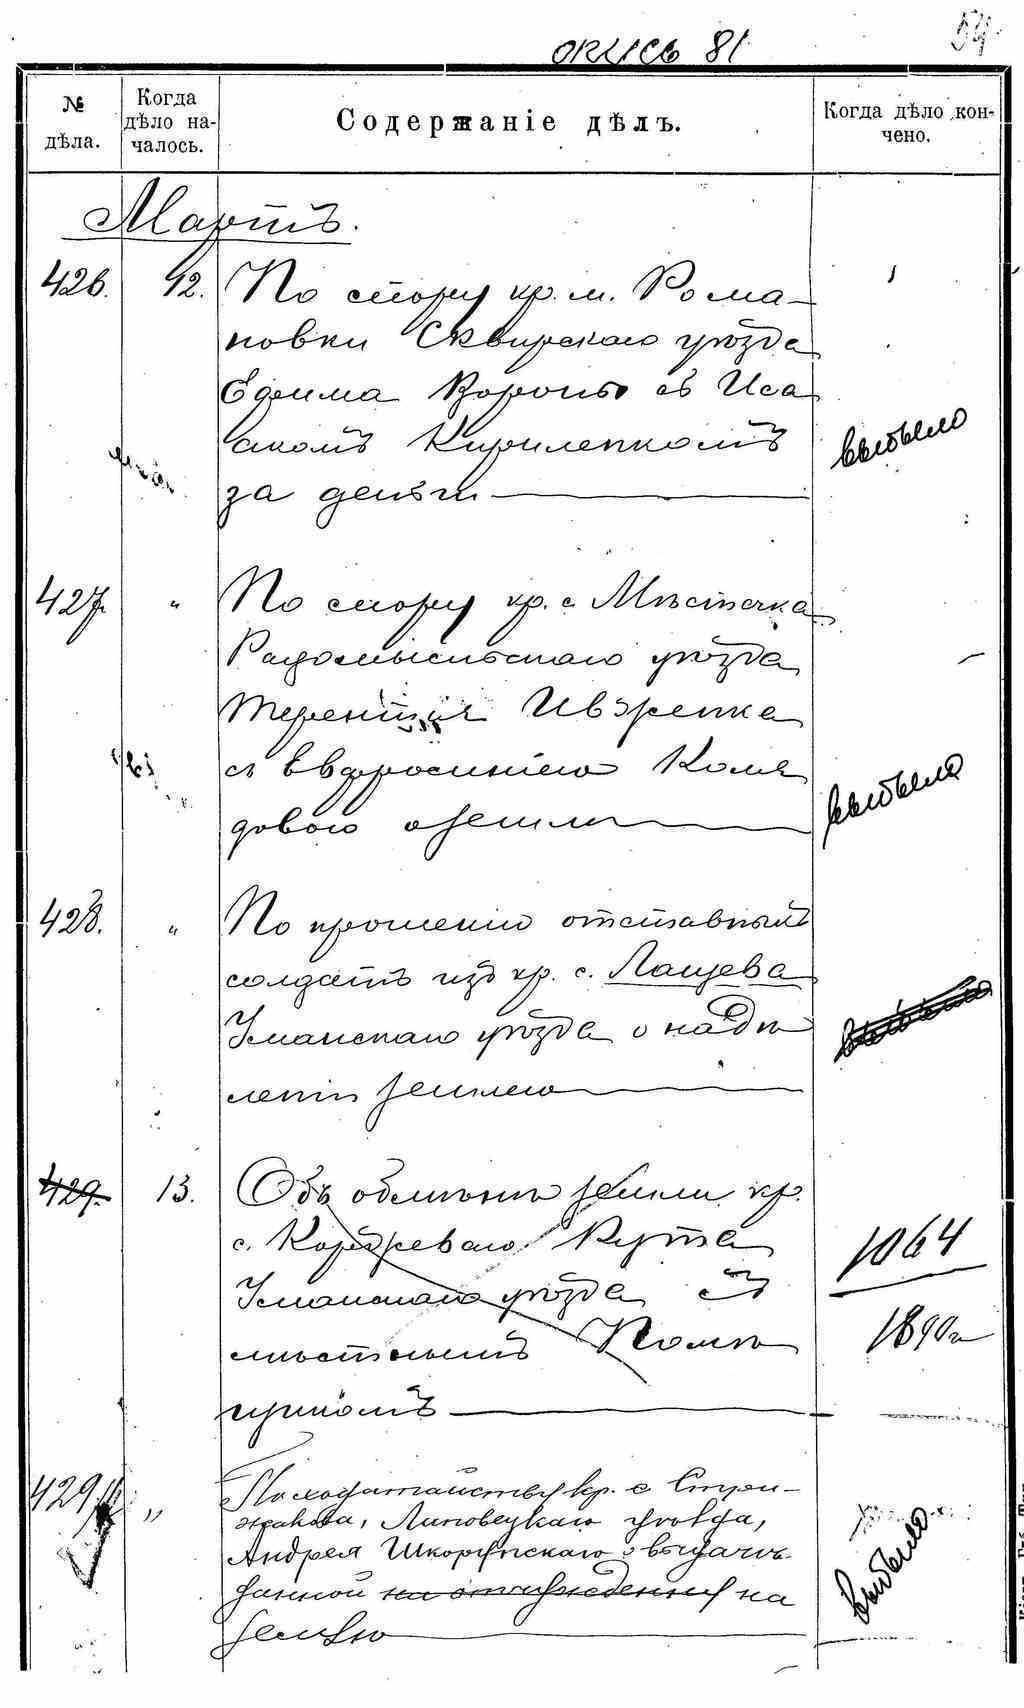 опись 81
54
№ дѣла.
Когда дѣло на-
чалось.
Содержаніе дѣлъ.
Когда дѣло кон-
чено.
Мартъ.
426. 12. По спору кр. м. Рома-
новки Сквирскаго уѣзда
Ефима Вороны съ Иса
акомъ Кириленкомъ
за деньги
выбыло
427. " По спору кр. с. Мѣстечка
Радомысльскаго уѣзда
Терентія
съ Евфросиніею Коля
довою о землѣ
выбыло
428. " По прошенію отставныхъ
солдатъ изъ кр. с. Лащева
Уманскаго уѣзда о надѣ
леніи землею
выбыло
429. 13. Объ обмѣнѣ земли кр.
с. Коржеваго Кута
Уманскаго уѣзда съ
мѣстнымъ Помѣ
щикомъ
1064
1890 г
429 " По ходатайству кр. с. Стри-
жакова, Липовецкаго уѣзда,
Андрея Шкорупскаго о выдачѣ
данной на отчужденную на
землю
выбыло